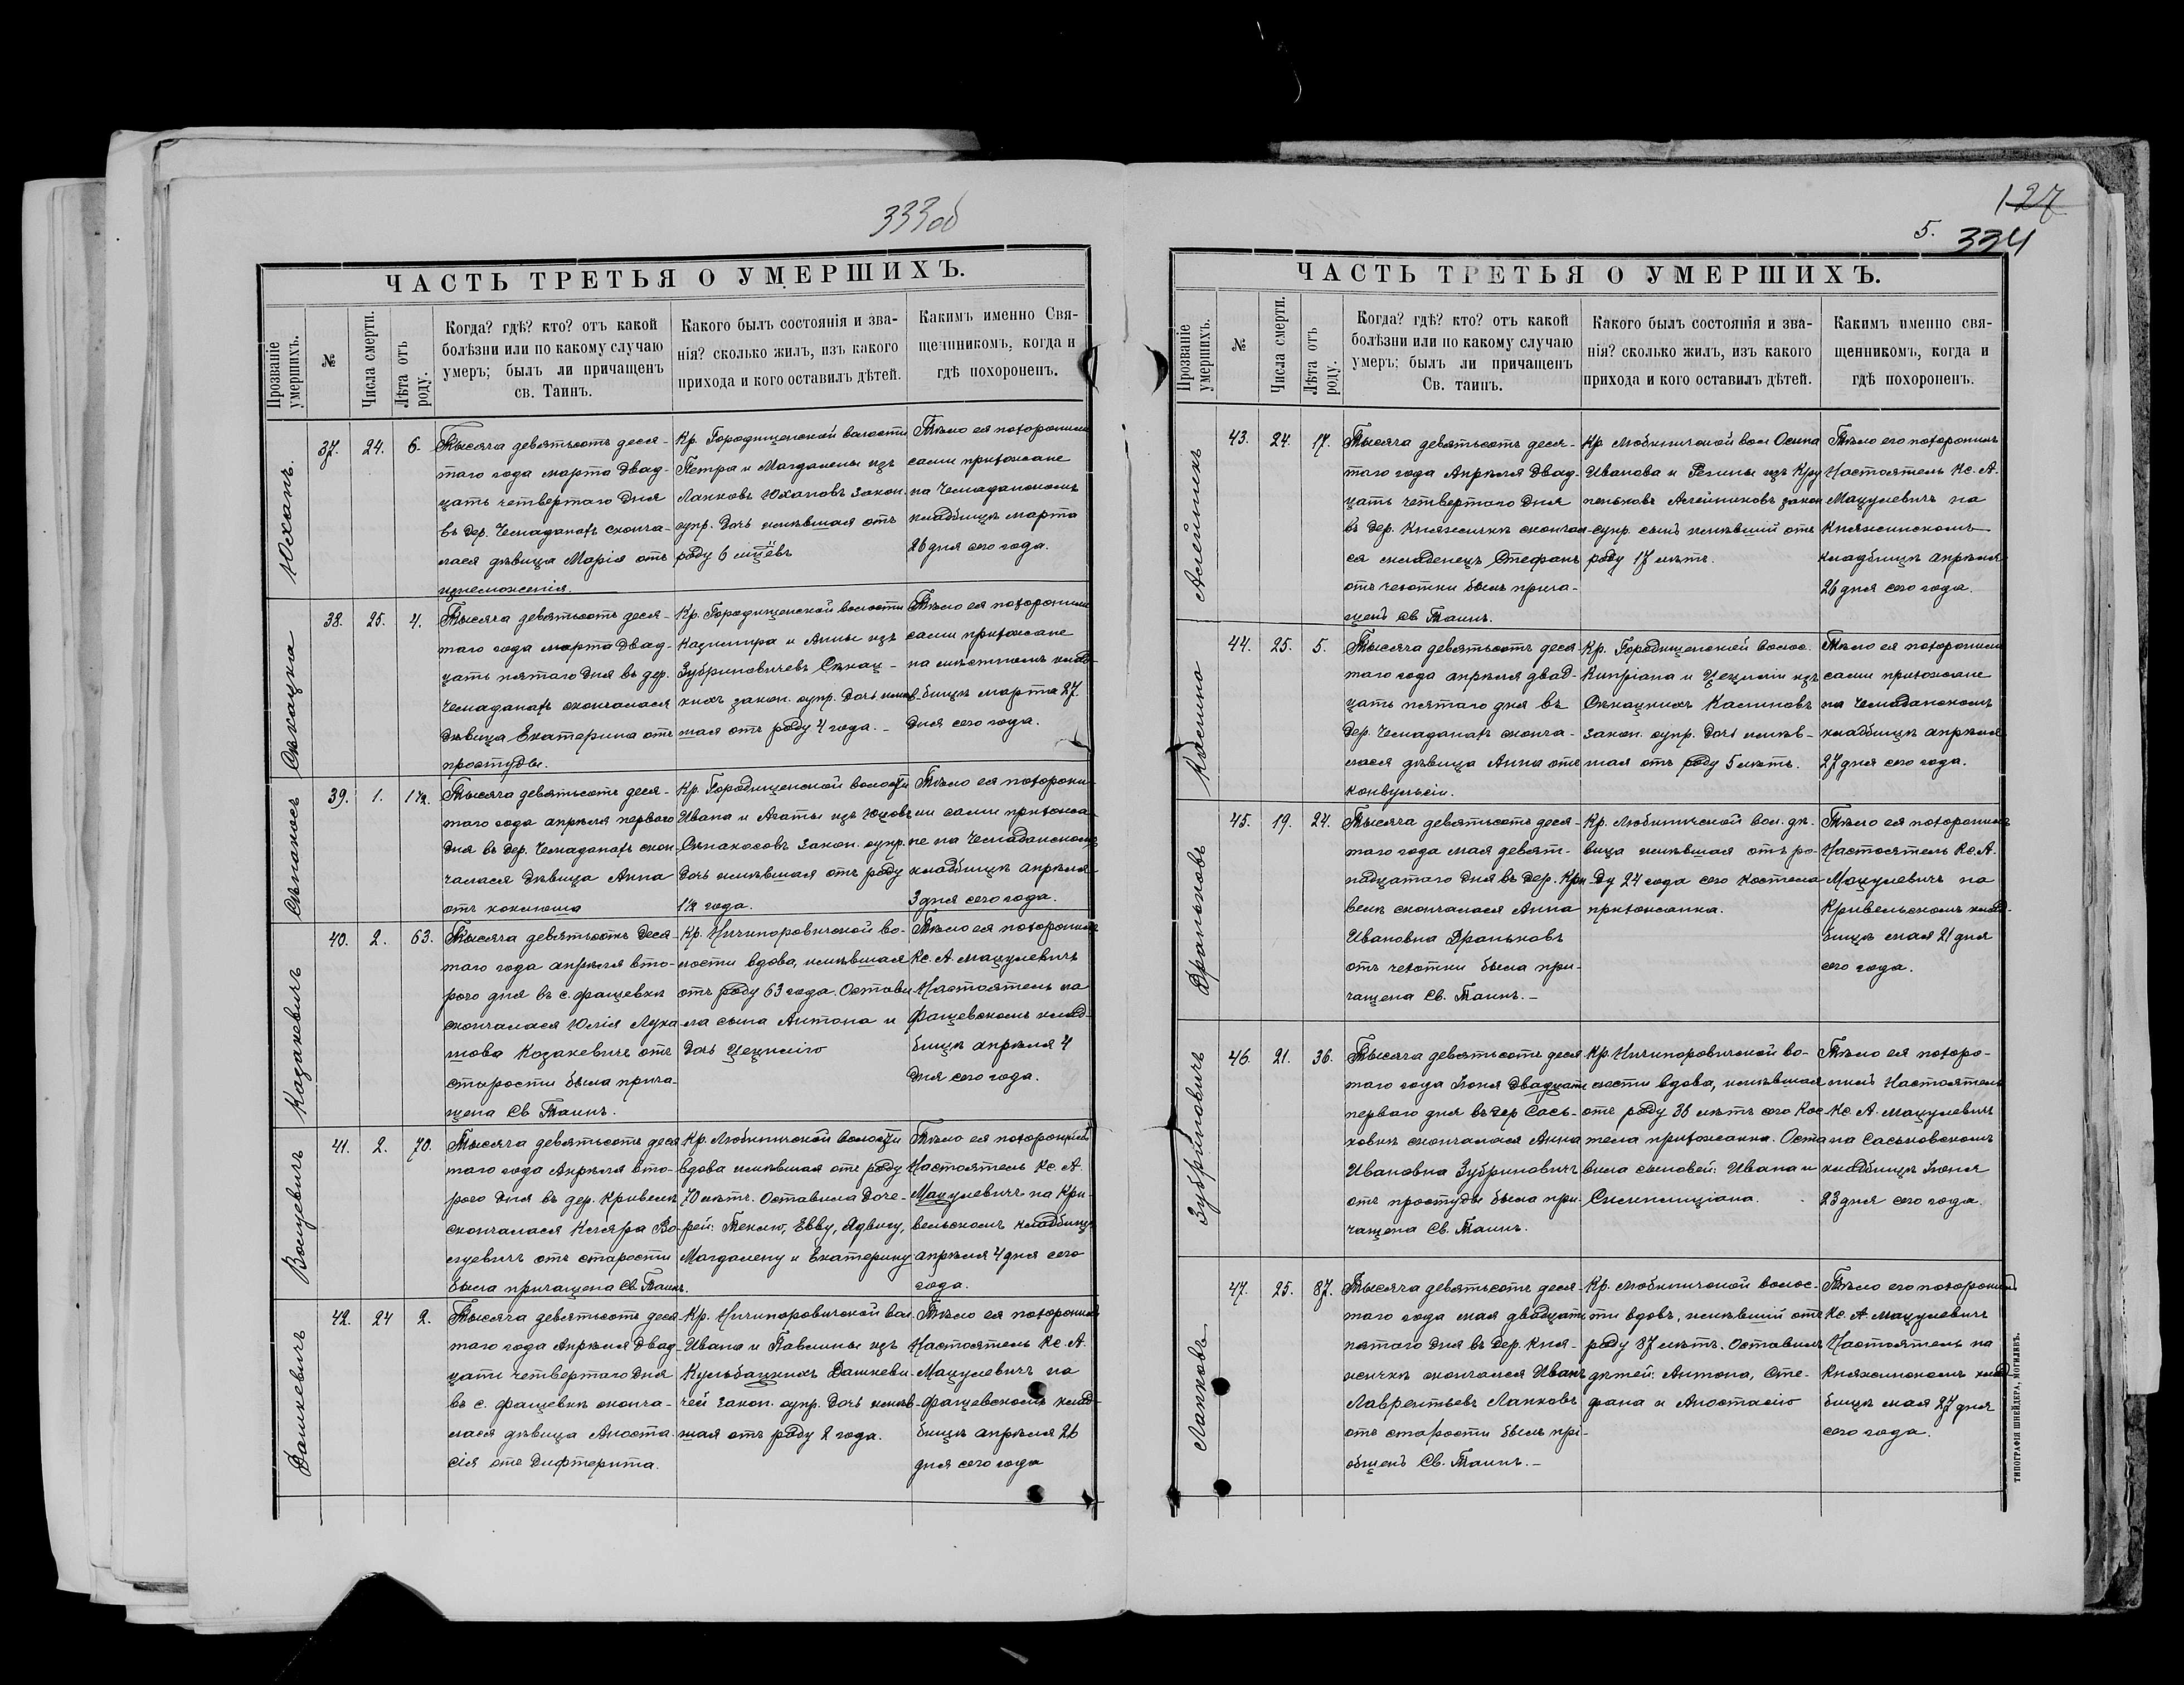 333об
ЧАСТЬ ТРЕТЬЯ О УМЕРШИХЪ.
Прозваніе умершихъ.
№
Числа смерти.
Лѣта отъ роду.
Когда? гдѣ? кто? отъ какой
болѣзни или по какому случаю
умеръ; былъ ли причащенъ
св. Таинъ.
Какого былъ состоянія и зва-
нія? сколько жилъ, изъ какого
прихода и кого оставилъ дѣтей.
Какимъ именно Свя-
щенникомъ, когда и
гдѣ похороненъ.
Юханъ.
37.
24.
6.
Тысяча девятьсотъ деся-
таго года марта двад-
цать четвертаго дня
въ дер. Чемаданахъ сконча-
лася дѣвица Марія отъ
изнеможенія.
Кр. Городищенской волости
Петра и Магдалены изъ
Лапковъ Юхановъ закон.
супр. дочь имѣвшая отъ
роду 6 мцевъ
Тѣло ея похоронили
сами прихожане
на Чемаданскомъ
кладбищѣ марта
26 дня сего года.
Сѣкацка
38.
25.
4.
Тысяча девятьсотъ деся-
таго года марта двад-
цать пятаго дня въ дер.
Чемаданахъ скончалася
дѣвица Екатерина отъ
простуды.
Кр. Городищенской волости
Казимира и Анны изъ
Зубриновичевъ Сѣкац-
кихъ закон. супр. дочь имѣв-
шая отъ роду 4 года.
Тѣло ея похоронили
сами прихожане
на мѣстномъ клад-
бищѣ марта 27.
дня сего года.
Сѣнокосъ
39.
1.
1 1/2.
Тысяча девятьсотъ деся-
таго года апрѣля перваго
дня въ дер. Чемаданахъ скон-
чалася дѣвица Анна
отъ коклюша
Кр. Городищенской волости
Ивана и Агаты изъ Юцовъ
Сѣнакосовъ закон. супр.
дочь имѣвшая отъ роду
1 1/2 года.
Тѣло ея похорони-
ли сами прихожа-
не на Чемаданскомъ
кладбищѣ апрѣля
3 дня сего года.
Казакевичъ
40.
2.
63.
Тысяча девятьсотъ деся-
таго года апрѣля вто-
рого дня въ с. Фащевкѣ
скончалася Юлія Лука-
шова Козакевичъ отъ
старости была прича-
щена Св Таинъ.
Кр. Ничипоровичской во-
лости вдова, имѣвшая
отъ роду 63 года. Остави-
ла сына Антона и
дочь Цецилію
Тѣло ея похоронилъ
Кс. А. Мацулевичъ
Настоятель на
Фащевскомъ клад-
бищѣ апрѣля 4
дня сего года.
41.
2.
70.
Тысяча девятьсотъ деся
таго года Апрѣля вто-
рого дня въ дер. Кривелѣ
скончалася Кляра Во-
была причащена Св. Таинъ.
Кр. Любиничской волости
вдова имѣвшая отъ роду
70 лѣтъ. Оставила доче-
рей: Теклю, Евву, Ядвигу,
Магдалену и Екатерину
Тѣло ея похоронилъ
Настоятель Кс. А.
Мацулевичъ на Кри-
вельскомъ кладбищѣ
апрѣля 4 дня сего
года.
Дашкевичъ
42.
24
2.
Тысяча девятьсотъ деся
таго года Апрѣля двад-
цать четвертаго дня
въ с. Фащевкѣ сконча-
лася дѣвица Анаста-
сія отъ дифтерита.
Кр. Ничипоровичской вол.
Ивана и Павлины изъ
Кульбацкихъ Дашкеви-
чей закон. супр. дочь имѣв-
шая отъ роду 2 года.
Тѣло ея похоронилъ
Настоятель Кс. А.
Мацулевичъ на
Фащевскомъ клад-
бищѣ апрѣля 26
дня сего года
127
5.
334
ЧАСТЬ ТРЕТЬЯ О УМЕРШИХЪ.
Прозваніе умершихъ.
№
Числа смерти.
Лѣта отъ роду.
Когда? гдѣ? кто? отъ какой
болѣзни или по какому случаю
умеръ; былъ ли причащенъ
Св. таинъ.
Какого былъ состоянія и зва-
нія? сколько жилъ, изъ какого
прихода и кого оставилъ дѣтей.
Какимъ именно свя-
щенникомъ, когда и
гдѣ похороненъ.
Алейникъ
43.
24.
17.
Тысяча девятьсотъ деся-
таго года Апрѣля двад-
цать четвертаго дня
въ дер. Княжичкѣ скончал-
ся младенецъ Стефанъ
отъ чехотки былъ прича-
щенъ Св Таинъ.
Кр. Любиничской вол Осипа
Иванова и Регины изъ Кру
пеньковъ Алейниковъ закон
супр. сынъ имѣвшій отъ
роду 17 лѣтъ.
Тѣло его похоронилъ
Настоятель Кс. А.
Мацулевичъ на
Княжинскомъ
кладбищѣ апрѣля
26 дня сего года.
Калина
44.
25.
5.
Тысяча девятьсотъ деся
таго года апрѣля двад-
цать пятаго дня въ
дер. Чемаданахъ сконча-
лася дѣвица Анна отъ
конвульсіи.
Кр. Городищенской волос.
Кипріана и Цециліи изъ
Сѣкацкихъ Калиновъ
закон. супр. дочь имѣв-
шая отъ роду 5 лѣтъ.
Тѣло ея похоронили
сами прихожане
на Чемаданскомъ
кладбищѣ апрѣля
27 дня сего года.
Драньковъ
45.
19.
24.
Тысяча девятьсотъ деся-
таго года мая девят-
надцатаго дня въ дер. Кри-
велѣ скончалася Анна
Ивановна Драньковъ
отъ чехотки была при-
чащена Св. Таинъ.
Кр. Любиничской вол. дѣ-
вица имѣвшая отъ ро-
ду 24 года сего костела
прихожанка.
Тѣло ея похоронилъ
Настоятель Кс. А.
Мацулевичъ на
Кривельскомъ клад-
бищѣ мая 21 дня
сего года.
Зубриновичъ
46.
21.
36.
Тысяча девятьсотъ деся
таго года Іюня двадцать
перваго дня въ дер Сась-
ковкѣ скончалася Анна
Ивановна Зубриновичъ
отъ простуды была при-
чащена Св. Таинъ.
Кр. Ничипоровичской во-
лости вдова, имѣвшая
отъ роду 36 лѣтъ сего Кос
тела прихожанка. Оста
вила сыновей: Ивана и
Тѣло ея похоро-
нилъ Настоятель
Кс. А. Мацулевичъ
на Саськовскомъ
кладбищѣ Іюня
23 дня сего года.
Лапковъ
47.
25.
87.
Тысяча девятьсотъ деся-
таго года мая двадцать
пятаго дня въ дер. Кня-
жичкѣ скончался Иванъ
Лаврентьевъ Лапковъ
отъ старости былъ прі-
общенъ Св. Таинъ.
Кр. Любиничской волос-
ти вдовъ, имѣвшій отъ
роду 87 лѣтъ. Оставилъ
дѣтей: Антона, Сте-
фана и Анастасію
Тѣло его похоронилъ
Кс. А. Мацулевичъ
Настоятель на
Княжинскомъ клад-
бищѣ мая 27 дня
сего года.
ТИПОГРАФІЯ ШНЕЙДЕРА, МОГИЛЕВЪ.